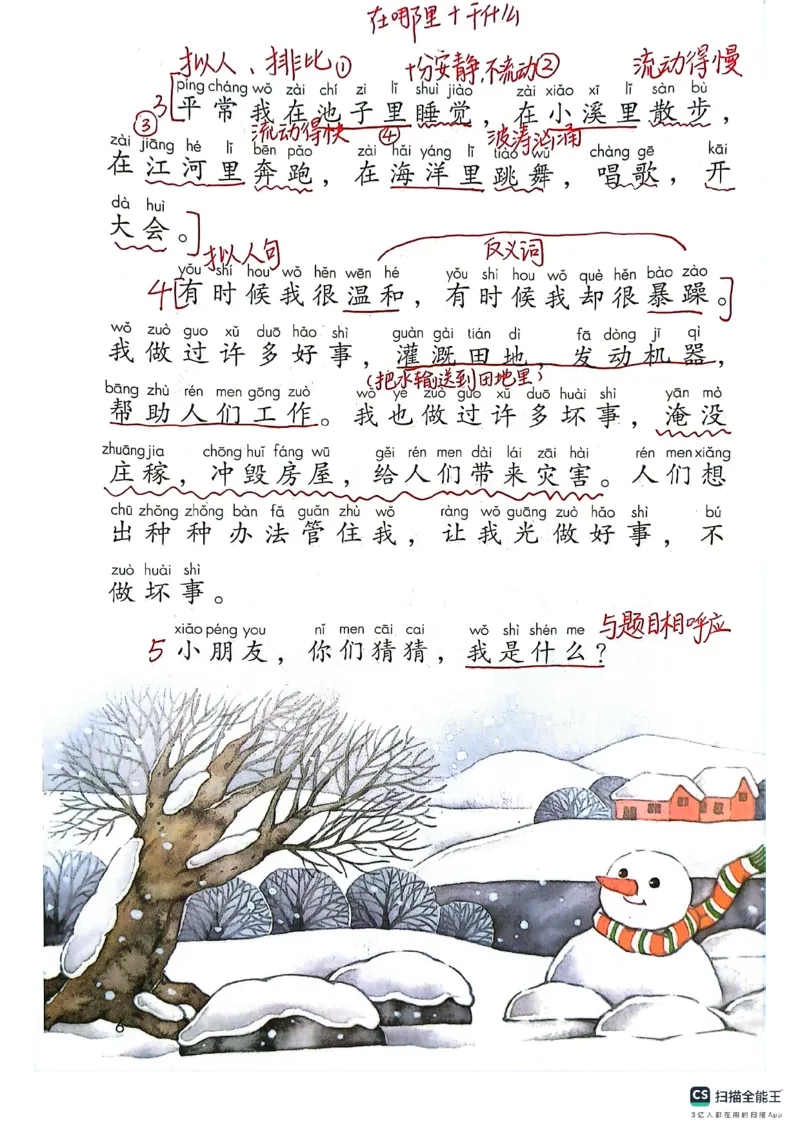 在哪里+干什么
拟人、排比① 十分安静,不流动② 流动得慢
píng cháng wǒ zài chí zi lǐ shuì jiào zài xiǎo xī lǐ sàn bù
3[平常我在池子里睡觉，在小溪里散步，
③ 流动得快 ④ 波涛汹涌
zài jiāng hé lǐ bēn pǎo zài hǎi yáng lǐ tiào wǔ chàng gē kāi
在江河里奔跑，在海洋里跳舞，唱歌，开
dà huì
大会。]
拟人句 反义词
yǒu shí hou wǒ hěn wēn hé yǒu shí hou wǒ què hěn bào zào
4[有时候我很温和，有时候我却很暴躁。]
wǒ zuò guo xǔ duō hǎo shì guàn gài tián dì fā dòng jī qì
我做过许多好事，灌溉田地，发动机器，
(把水输送到田地里)
bāng zhù rén men gōng zuò wǒ yě zuò guo xǔ duō huài shì yān mò
帮助人们工作。我也做过许多坏事，淹没
zhuāng jia chōng huǐ fáng wū gěi rén men dài lái zāi hài rén men xiǎng
庄稼，冲毁房屋，给人们带来灾害。人们想
chū zhǒng zhǒng bàn fǎ guǎn zhù wǒ ràng wǒ guāng zuò hǎo shì bú
出种种办法管住我，让我光做好事，不
zuò huài shì
做坏事。
xiǎo péng you nǐ men cāi cai wǒ shì shén me 与题目相呼应
5 小朋友，你们猜猜，我是什么？
6
CS 扫描全能王
3亿人都在用的扫描App